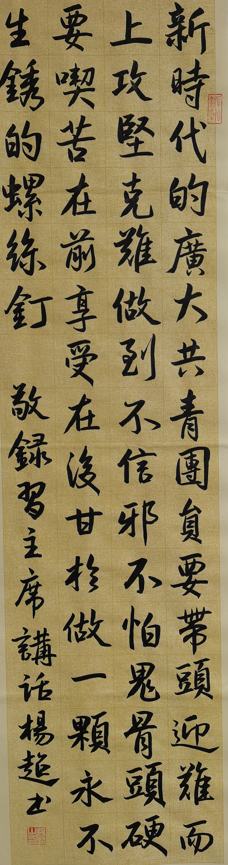 新時代的廣大共青團員要帶頭迎難而
上攻堅克難做到不信邪不怕鬼骨頭硬
要喫苦在前享受在後甘於做一顆永不
生銹的螺絲釘
敬録習主席講話楊超书